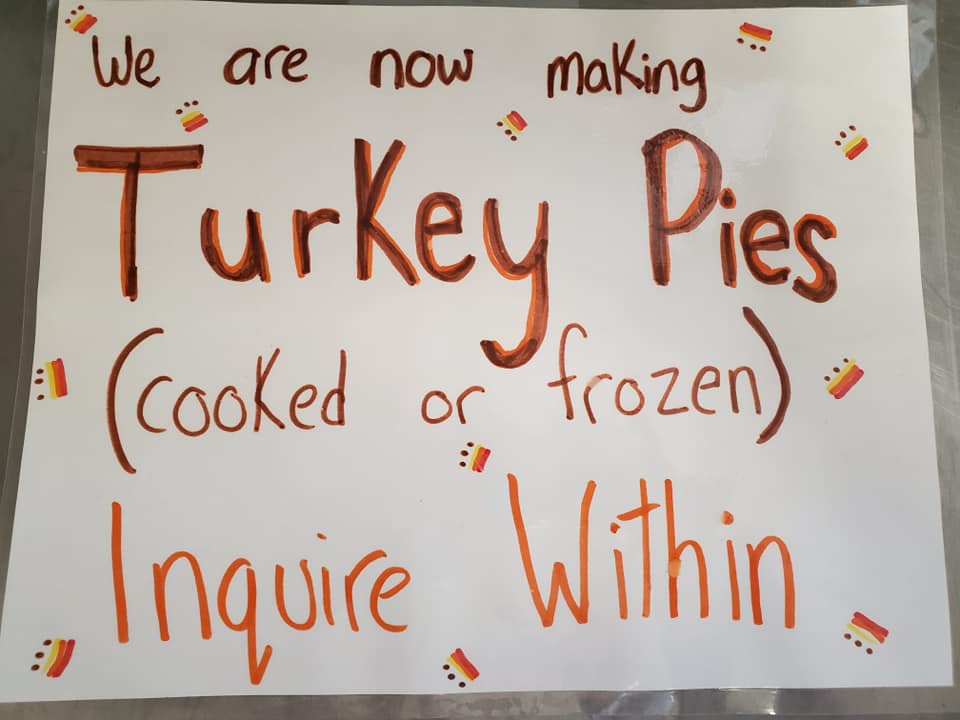 We are now making
Turkey Pies
(cooked or frozen)
Inquire Within